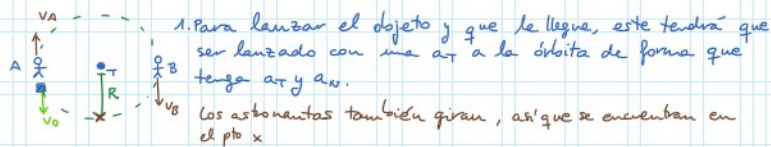 VA
A
T
B
R
VO
VB
x
1. Para lanzar el objeto y que le llegue, este tendrá que
ser lanzado con una aT a la órbita de forma que
tenga aT y aN.
Los astronautas también giran, así que se encuentran en
el pto x